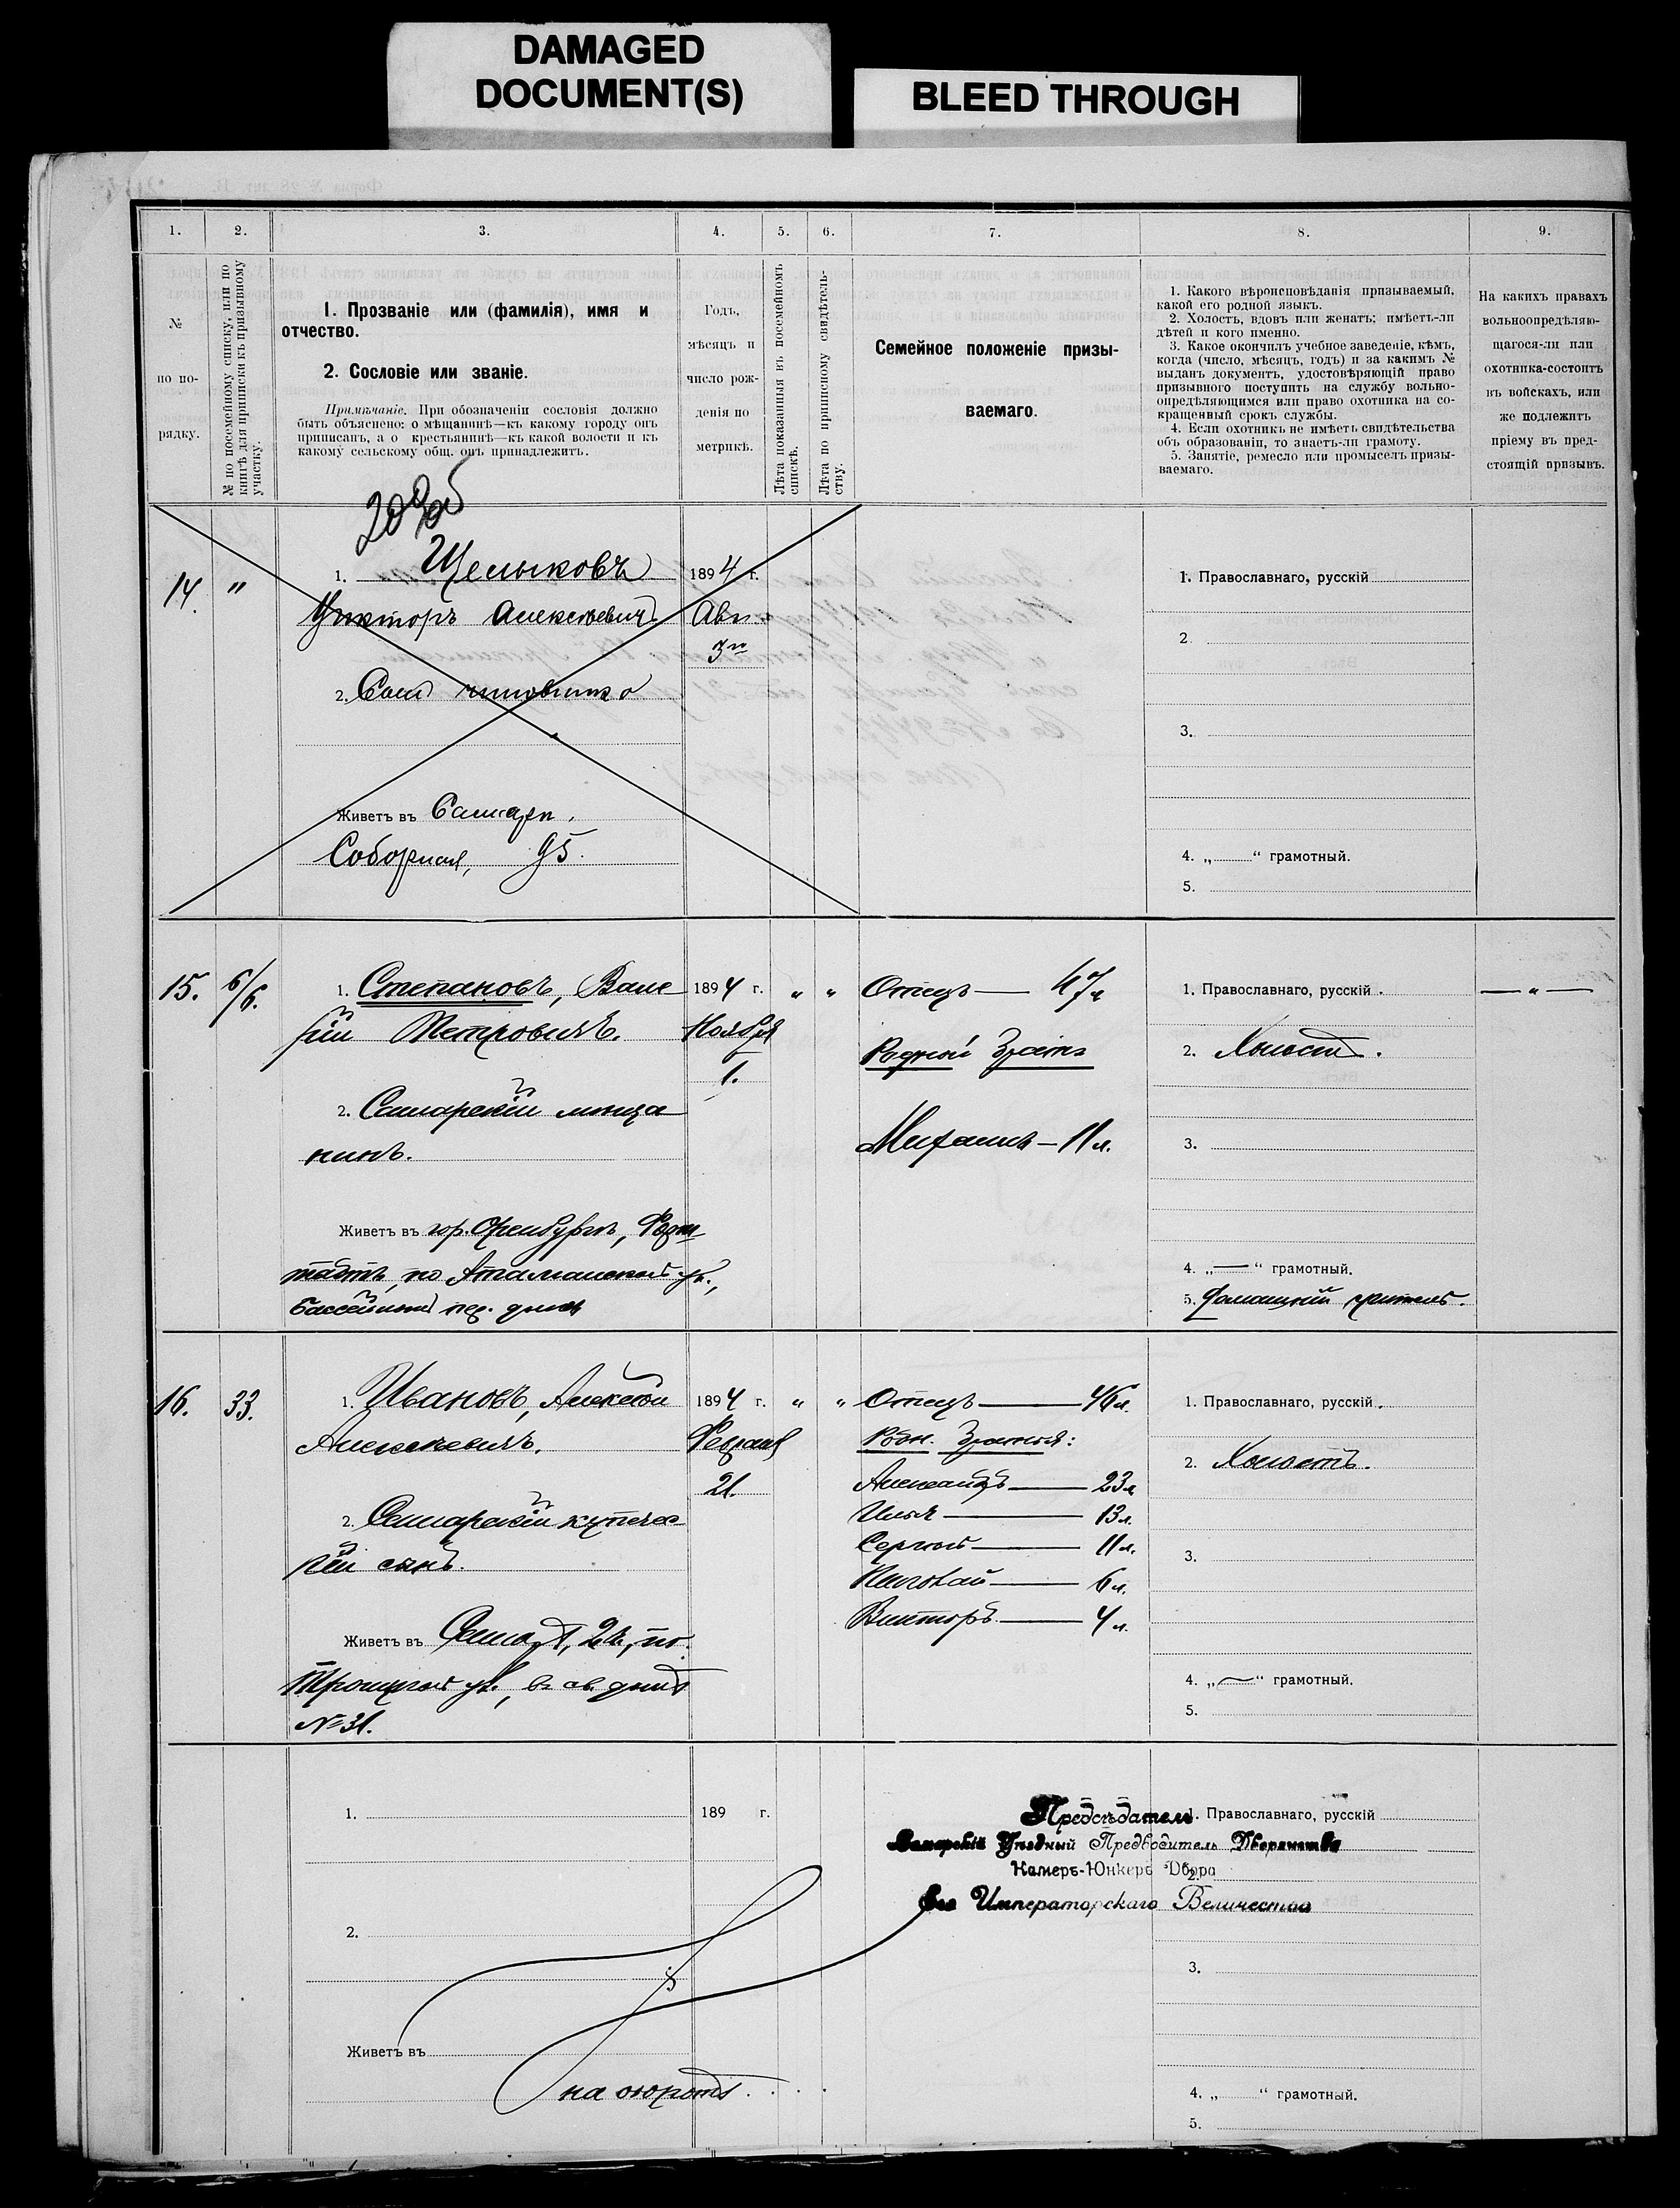 DAMAGED
DOCUMENT(S)
BLEED THROUGH
1.
2.
3.
4.
5.
6.
7.
8.
9.
№
по по-
рядку.
№ по посемейному списку, или по
книгѣ для приписки къ призывному
участку.
1. Прозваніе или (фамилія), имя и
отчество.
2. Сословіе или званіе.
Примѣчаніе. При обозначеніи сословія должно
быть объяснено: о мѣщанинѣ—къ какому городу онъ
приписанъ, а о крестьянинѣ—къ какой волости и къ
какому сельскому общ. онъ принадлежитъ.
Годъ,
мѣсяцъ и
число рож-
денія по
метрикѣ.
Лѣта показанныя въ посемейномъ
спискѣ.
Лѣта по приписному свидѣтель-
ству.
Семейное положеніе призы-
ваемаго.
1. Какого вѣроисповѣданія призываемый,
какой его родной языкъ.
2. Холостъ, вдовъ или женатъ; имѣетъ-ли
дѣтей и кого именно.
3. Какое окончилъ учебное заведеніе, кѣмъ,
когда (число, мѣсяцъ, годъ) и за какимъ №
выданъ документъ, удостовѣряющій право
призывного поступить на службу вольно-
опредѣляющимся или право охотника на со-
кращенный срокъ службы.
4. Если охотникъ не имѣетъ свидѣтельства
объ образованіи, то знаетъ-ли грамоту.
5. Занятіе, ремесло или промыселъ призы-
ваемаго.
На какихъ правахъ
вольноопредѣляю-
щагося-ли или
охотника-состоитъ
въ войскахъ, или
же подлежитъ
пріему въ пред-
стоящій призывъ.
14.
"
1. Щелыковъ
Викторъ Алексѣевич
2. Сынъ чиновника
Живетъ въ Самарѣ,
Соборная, 95.
1894 г.
Авг.
3го
1. Православнаго, русскій
2.
3.
4. „ “ грамотный.
5.
15.
6/6.
1. Степановъ, Вале
рій Петровичъ.
2. Самарскій мѣща
нинъ.
Живетъ въ гор. Оренбургѣ, Форш
тадтъ, по Атаманской ул.,
1894 г.
Ноября
1.
" "
Отецъ — 47л
Родной братъ
Михаилъ — 11 л.
1. Православнаго, русскій.
2. Холостъ.
3.
4. „—“ грамотный.
5. Домашній учитель.
— " —
16.
33.
1. Ивановъ, Алексѣй
Алексѣевичъ.
2. Самарскій купечес
кій сынъ.
Живетъ въ Самарѣ, 2 ч., по
Троицкой ул., въ св. домѣ
№ 31.
1894 г.
Февраля
21.
" "
Отецъ — 46 л.
Родн. братья:
Александръ — 23 л
Илья — 13 л.
Сергѣй — 11 л.
Николай — 6 л.
Викторъ — 4 л.
1. Православнаго, русскій.
2. Холостъ.
3.
4. „—“ грамотный.
5.
1.
2.
Живетъ въ
189 г.
Предсѣдатель
Самарскій Уѣздный Предводитель Дворянства
Камеръ-Юнкеръ Двора
Его Императорскаго Величества
1. Православнаго, русскій
2.
3.
4. „ “ грамотный.
5.
на оборотѣ